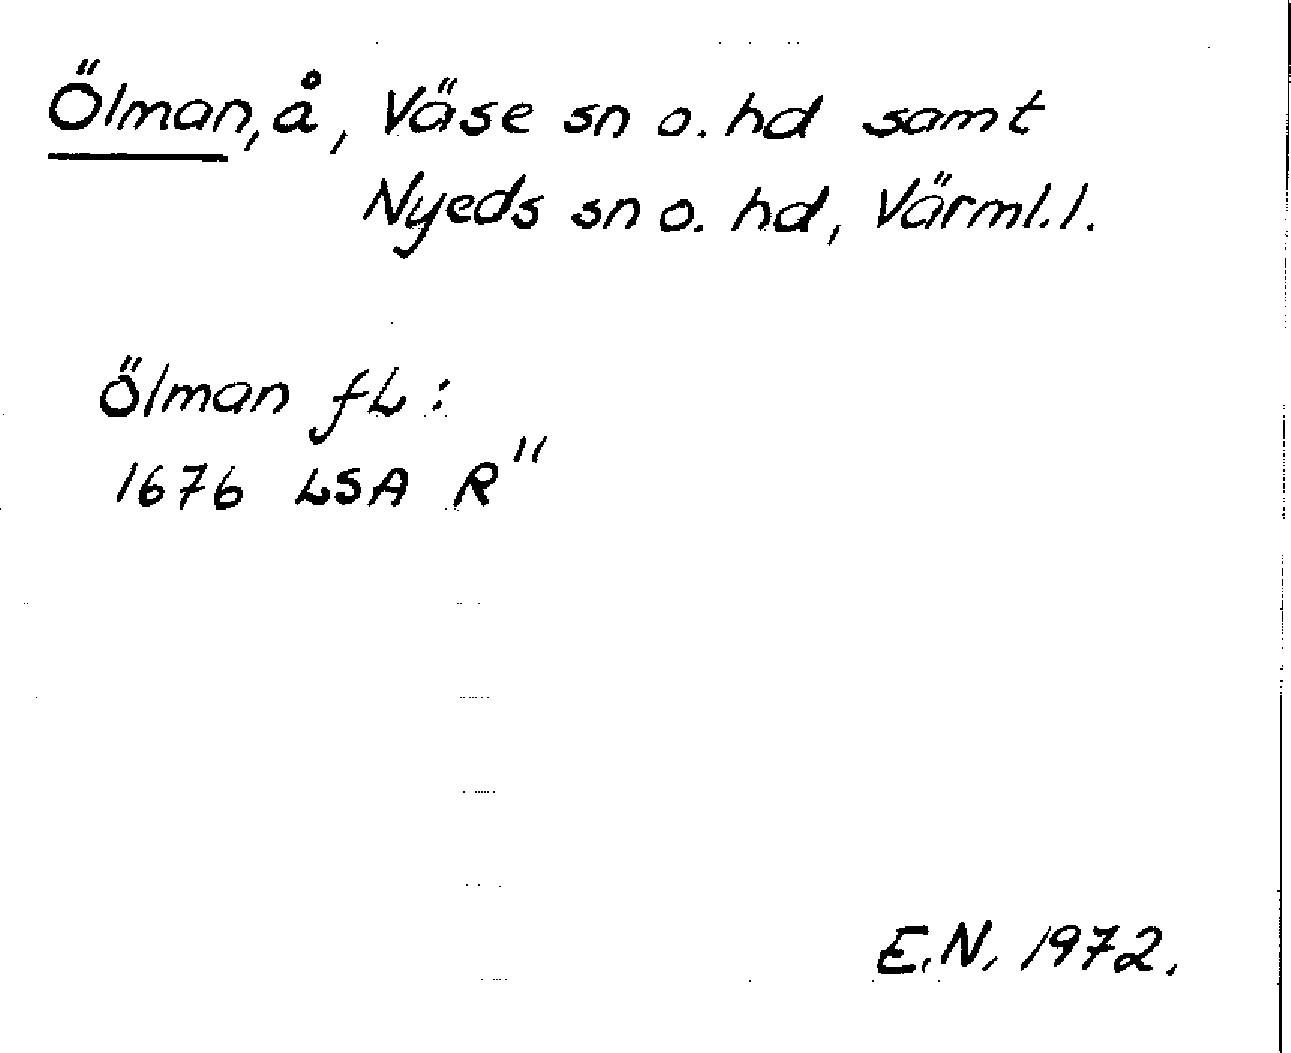 Ölman, å, Väse sn o. hd samt
Nyeds sn o. hd, Värml. l.
Ölman fL:
1676 LSA R"
E.N. 1972.